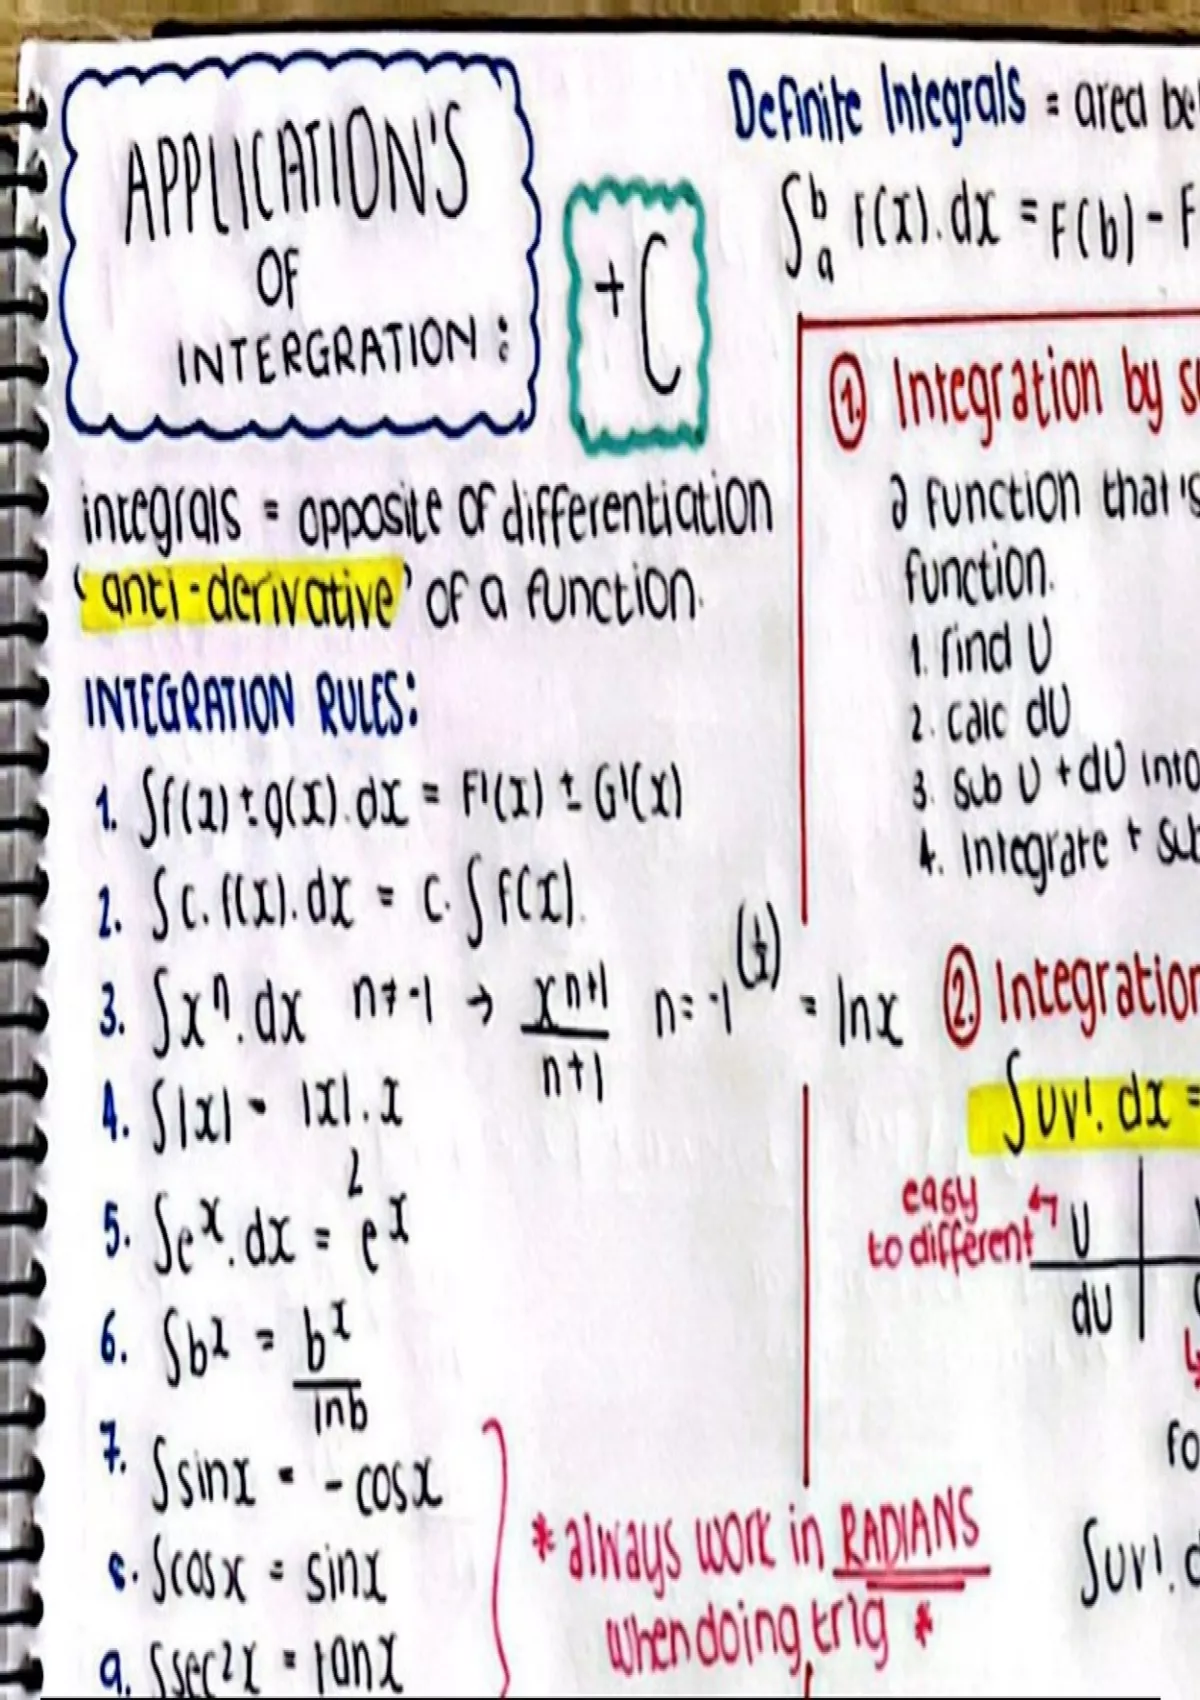 APPLICATION'S
OF
INTERGRATION :
+ C
integrals = opposite of differentiation
'anti-derivative' of a function.
INTEGRATION RULES:
1. ∫f(x) ± g(x).dx = F'(x) ± G'(x)
2. ∫c.f(x).dx = c.∫f(x).
3. ∫xⁿ.dx n≠-1 → xⁿ⁺¹/n+1 n=-1 = lnx
4. ∫|x| = |x|.x
2
5. ∫eˣ.dx = eˣ
6. ∫bˣ = bˣ/lnb
7. ∫sinx = -cosx
8. ∫cosx = sinx
9. ∫sec²x = tanx
* always work in RADIANS
when doing trig *
Definite Integrals = area
∫ᵇₐ f(x).dx = F(b) - F
1. Integration by
a function that's
function.
1. find U
2. calc dU
3. sub U + dU into
4. Integrate +
2. Integration
∫uv'.dx =
easy
to different
U
dU
∫uv'.